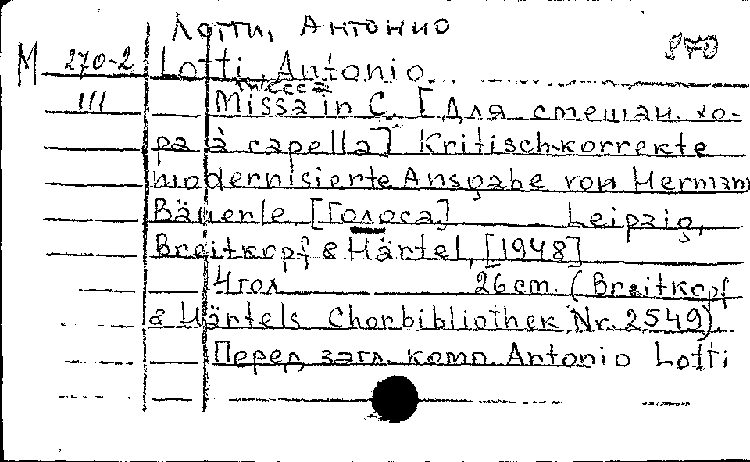 Лотти, Антонио
870
М 270-2 Lotti, Antonio.
III
Месса
Missa in C. [Для смешан. хо-
ра à capella] Kritisch-korrekte
modernisierte Ausgabe von Hermann
Bäuerle, [Голоса] Leipzig,
Breitkopf & Härtel, [1948]
4 гол. 26 cm. (Breitkopf
& Härtels Chorbibliothek Nr. 2549).
Перед загл. комп. Antonio Lotti